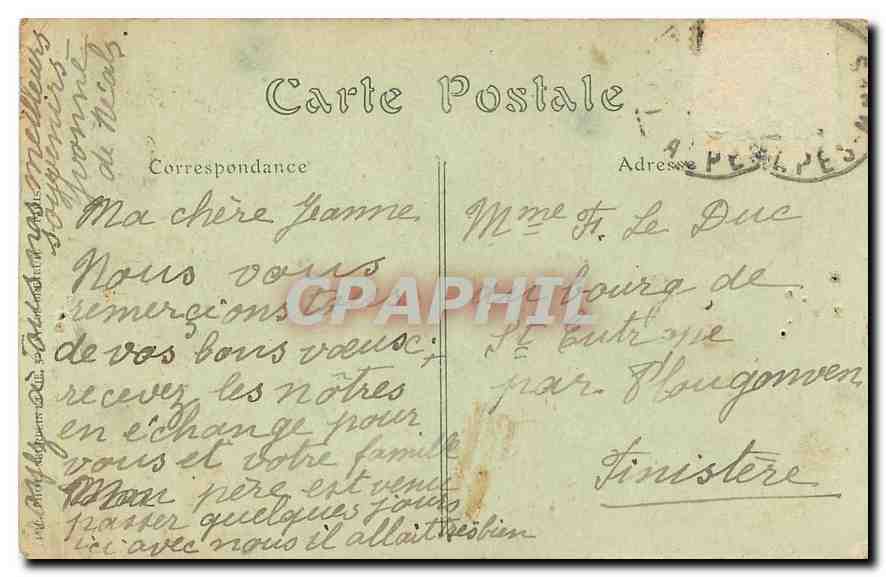 Carte Postale
Correspondance
Adresse
Ma chère Jeanne
Nous vous
remerçions
de vos bons vœux
recevez les nôtres
en échange pour
vous et votre famille
Mon père est venu
passer quelques jours
ici avec nous il allait très bien
à tous nos meilleurs
souvenirs
Yvonne
de
Mme F. Le Duc
au bourg de
St Eutrope
par Plougonven
Finistère
CPARHIL
ALPES